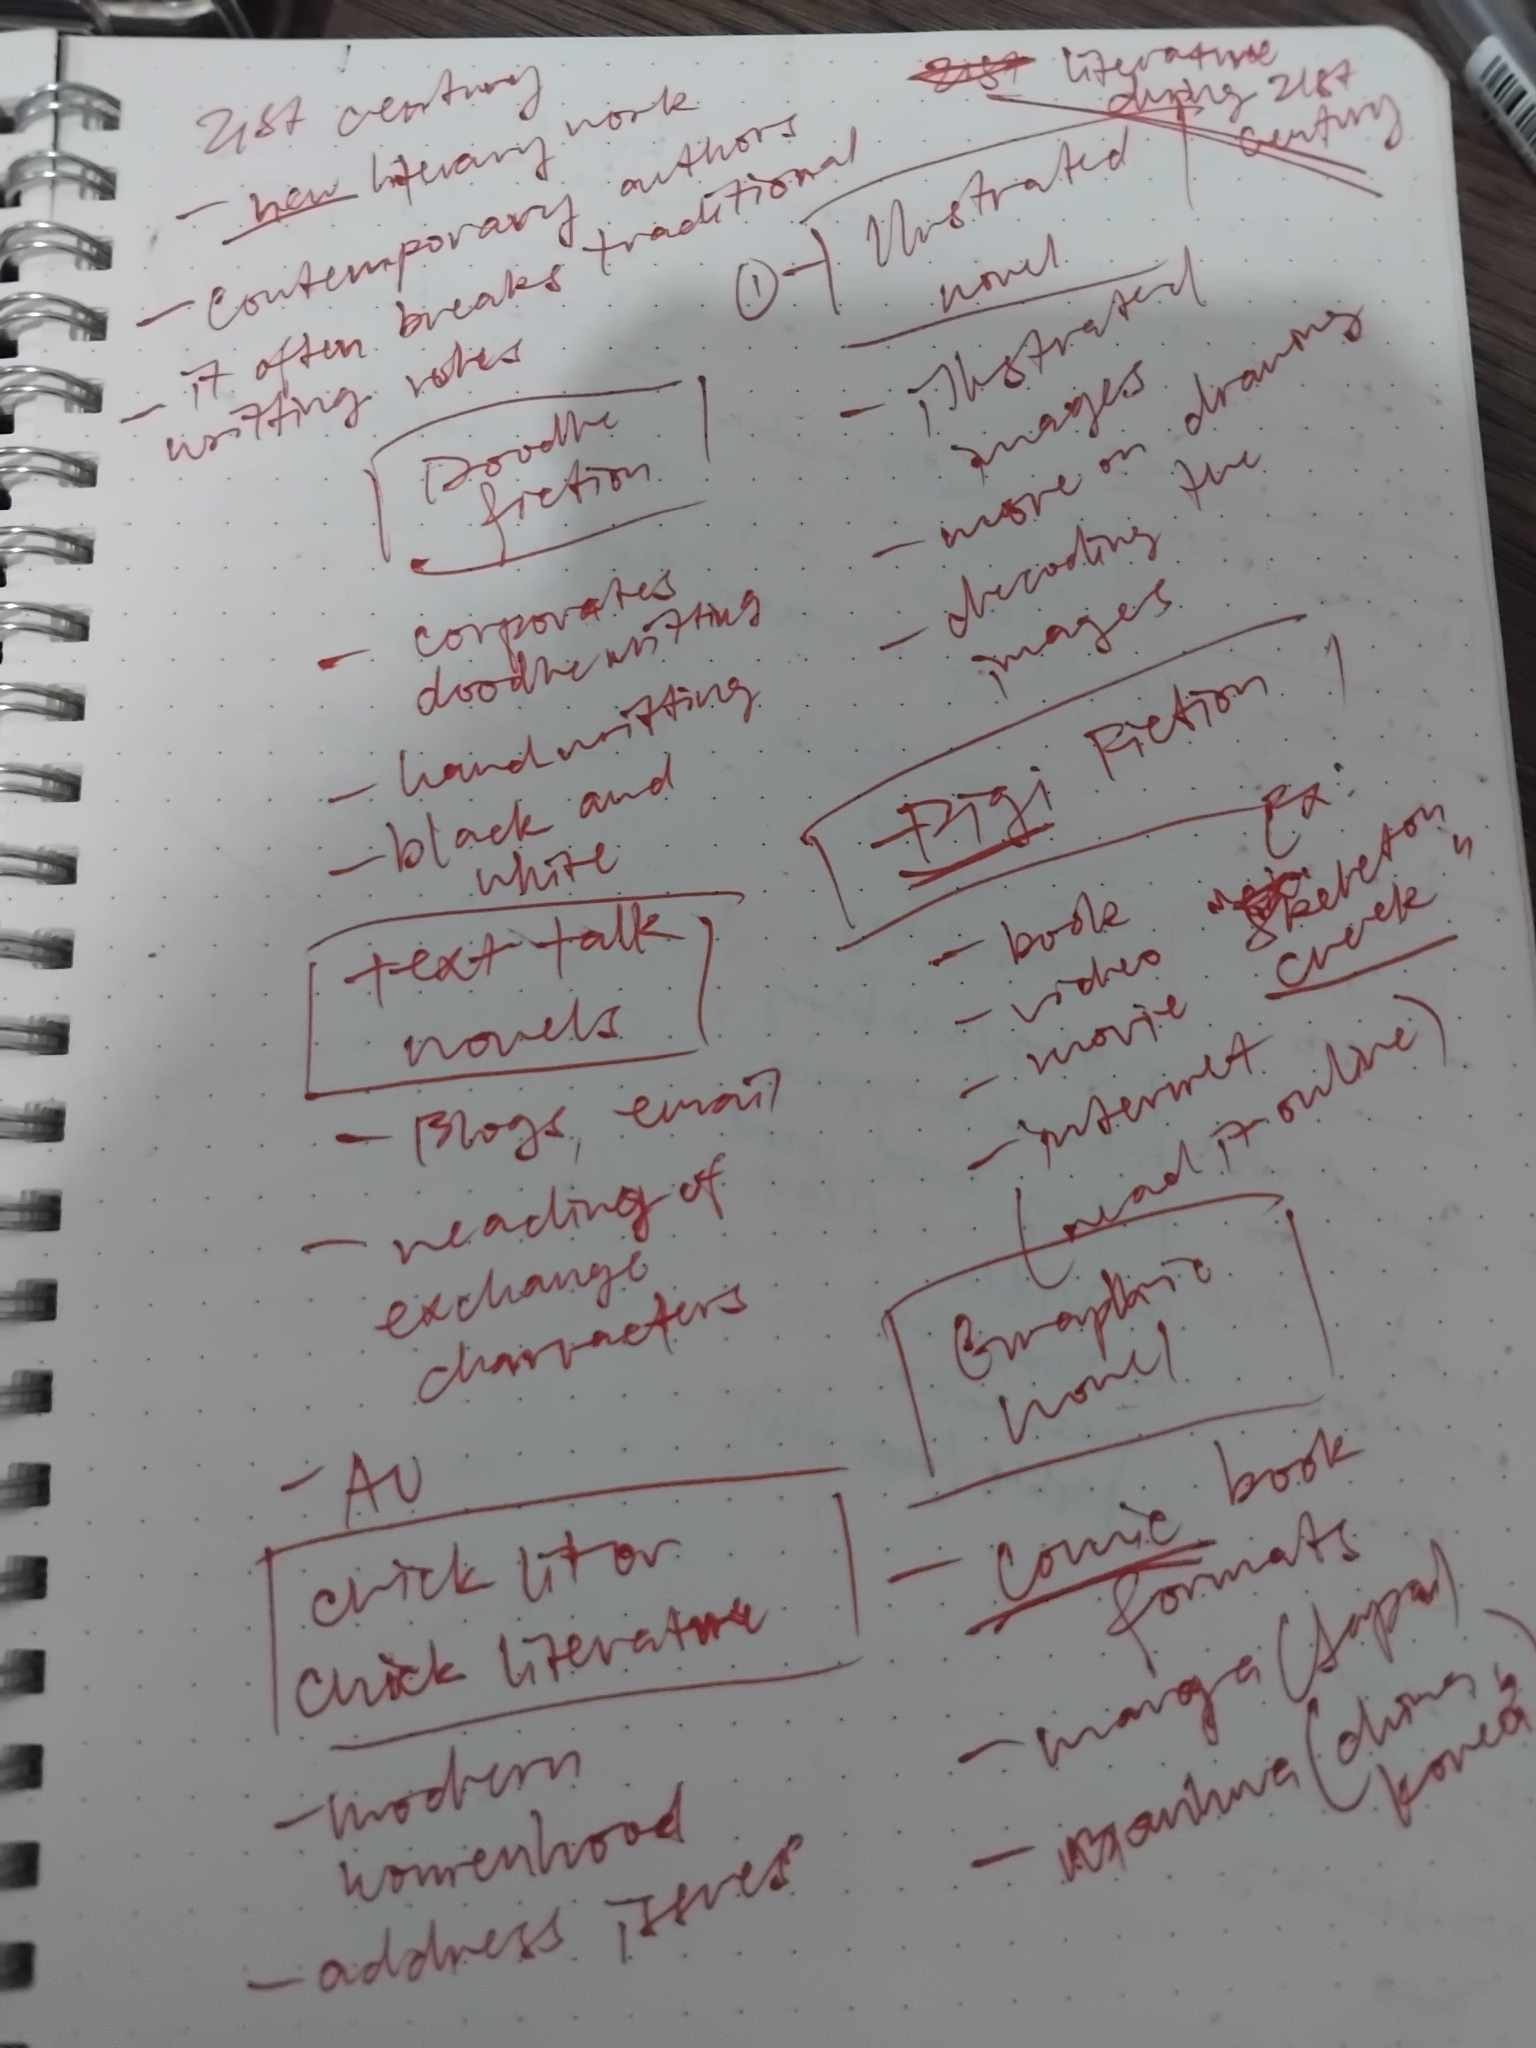 21st century
- new literary work
- contemporary authors
- it often breaks traditional
writting rules
Doodle
fiction
- corporates
doodle writting
- handwritting
- black and
white
text talk
novels
- Blogs, email
- reading of
exchange
characters
- AU
chick lit or
chick literature
- modern
womenhood
- address issues
21st literature
during 21st
century
① - Illustrated
novel
- illustrated
images
- more on drawing
- decoding the
images
- Digi Fiction
- book
- video
- movie
- internet
(read it online)
Ex:
"Skeleton
creek"
Graphic
novel
- comic book
formats
- manga (Japan)
- manhwa (china,
korea)